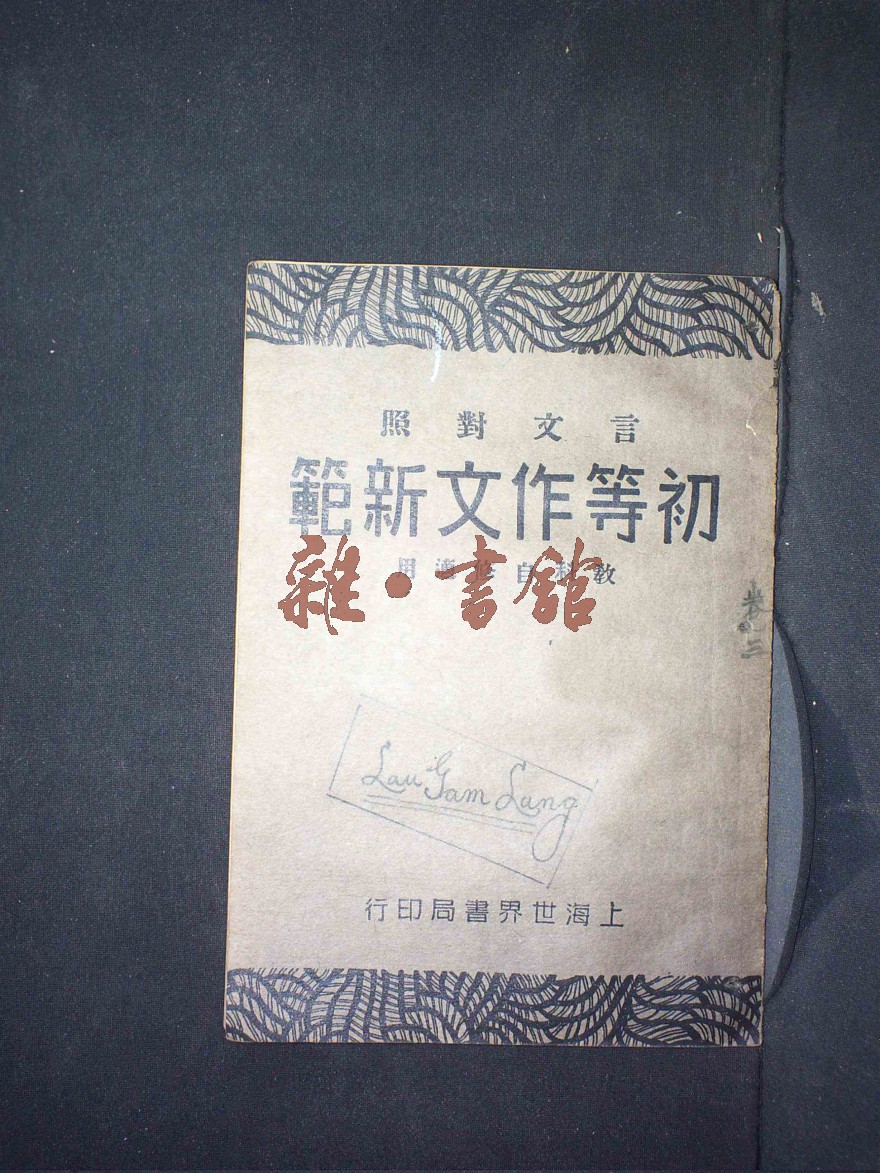 言文對照
初等作文新範
教科自修適用
雜·書館
卷三
Lau Gam Lang
上海世界書局印行